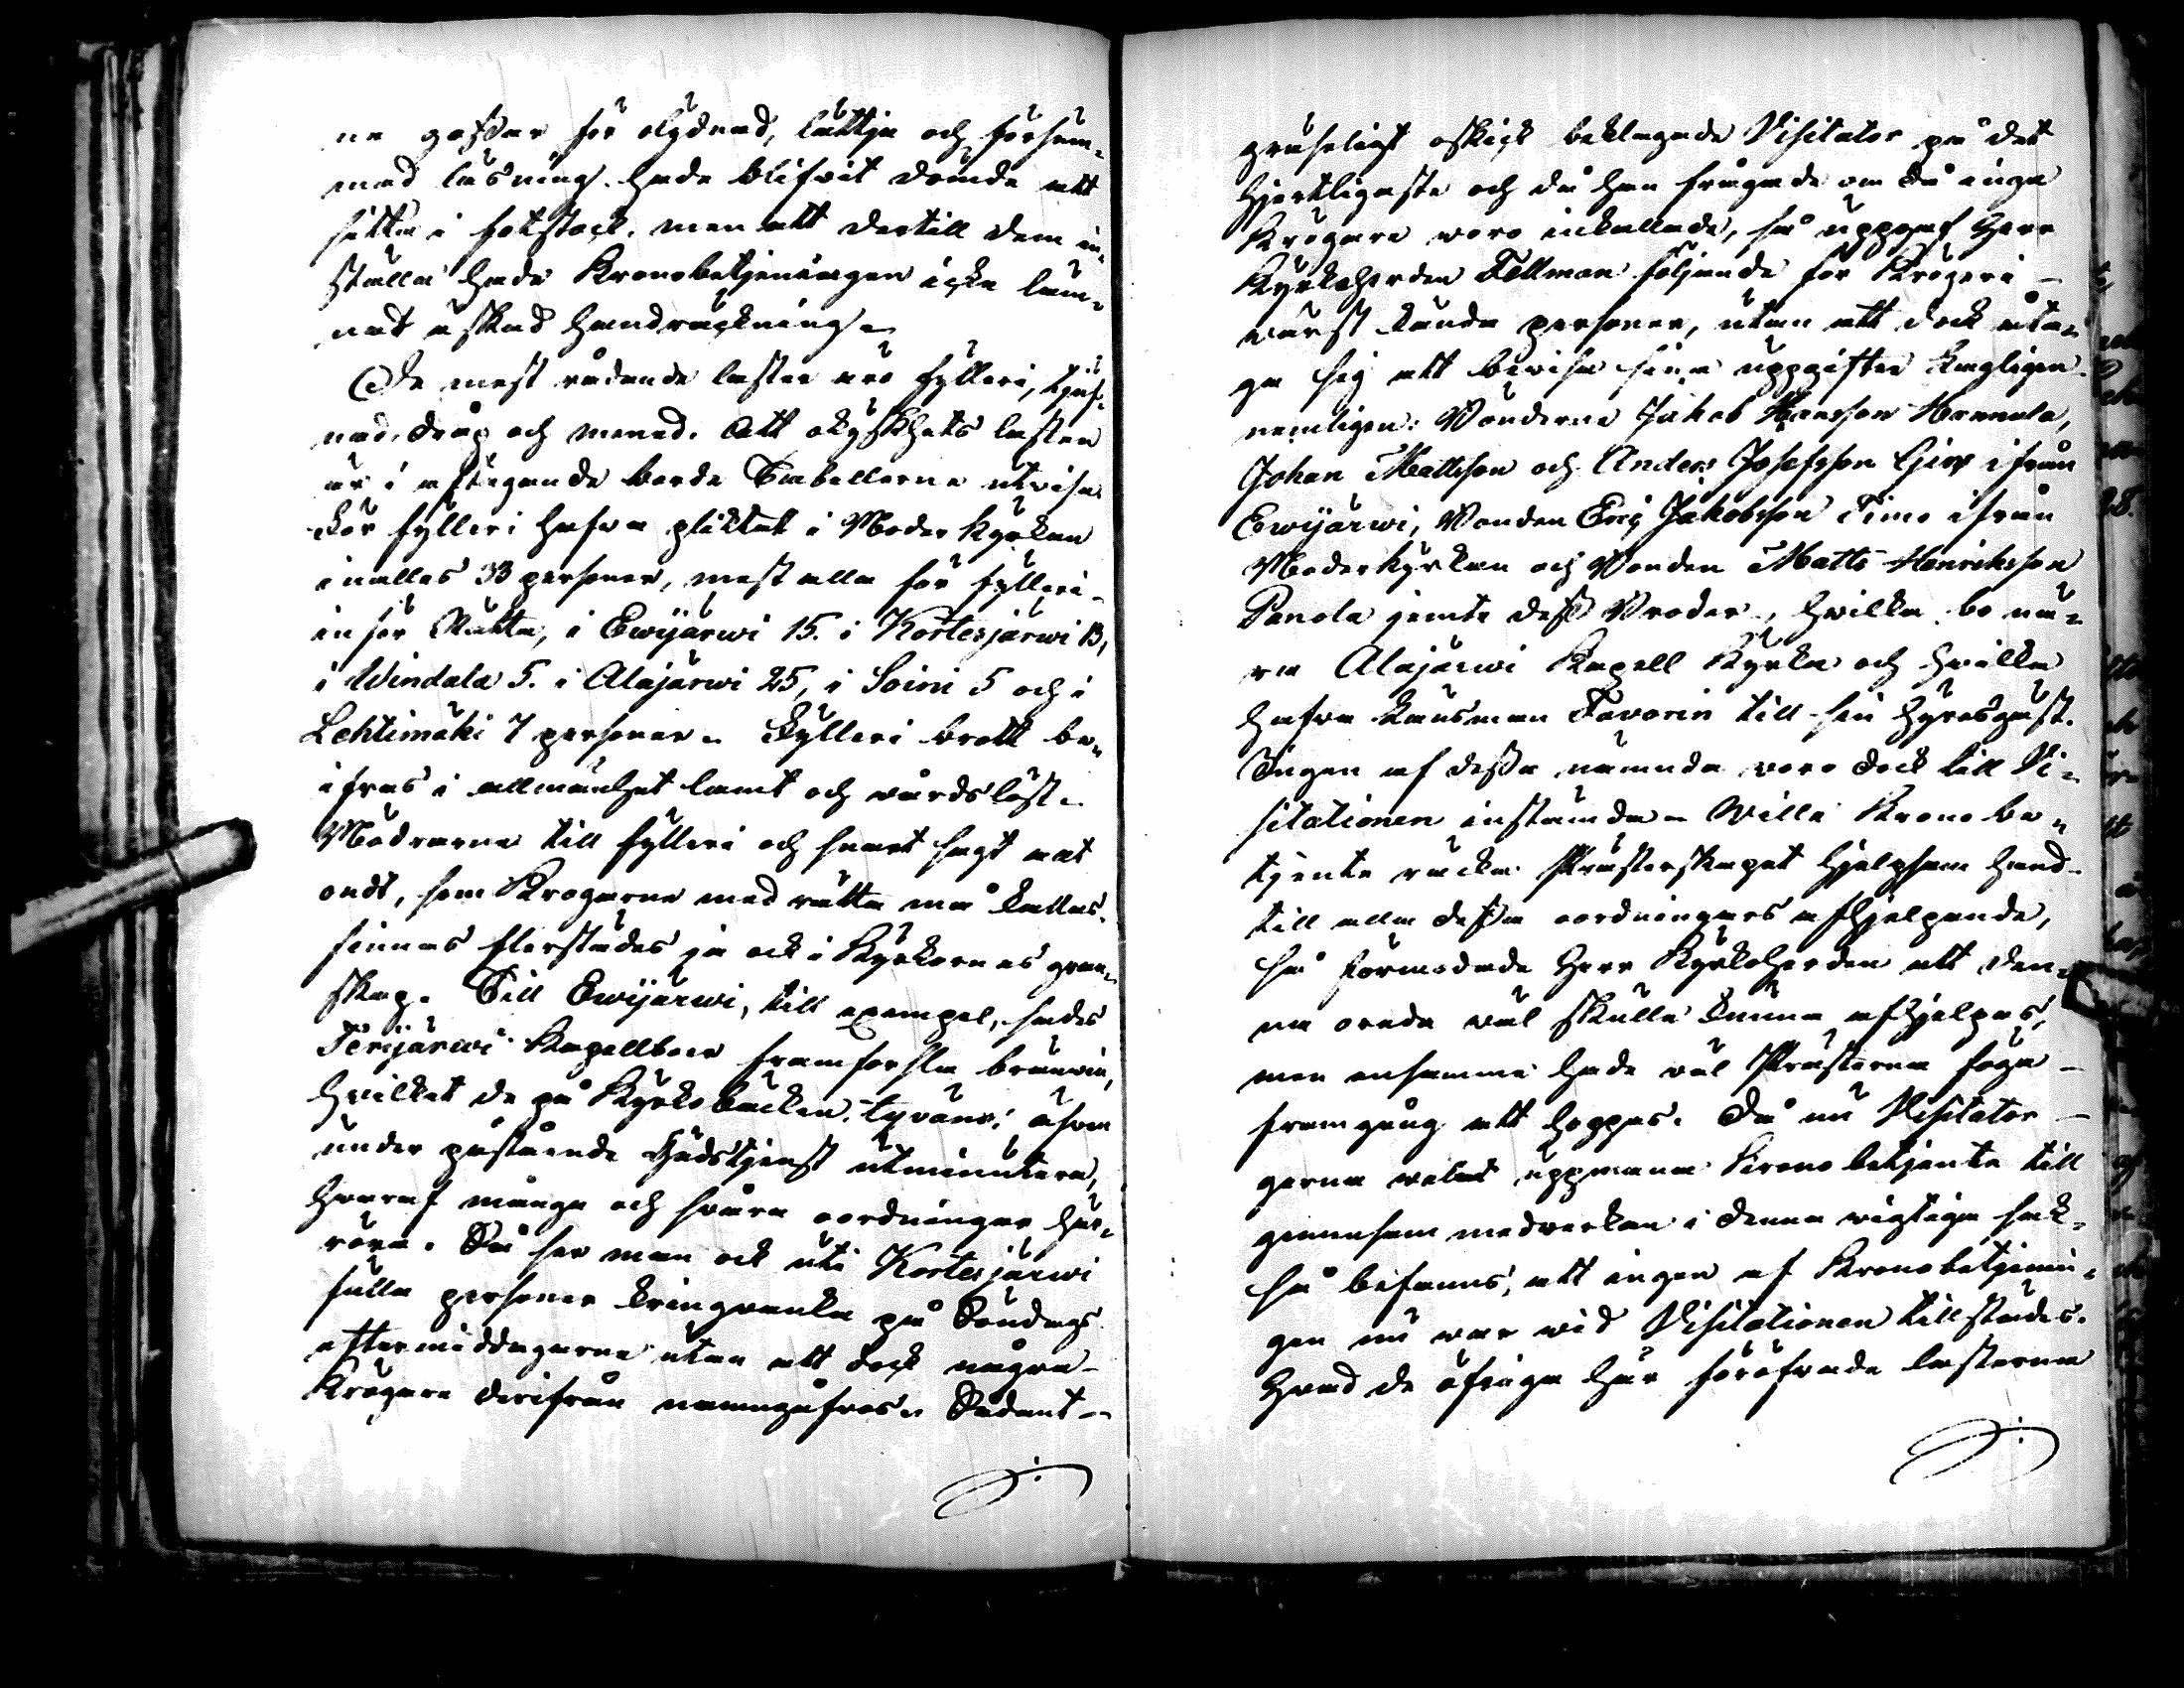 ne gossar för olydnad, lättja och försum=
mad läsning hade blifvit dömde att
sitta i fotstock, men att dertill dem in=
ställa hade Kronobetjeningen icke lem=
nat äskad handräckning.
De mest rådande laster äro fylleri, tjuf=
nad, dråp och mened. Att okyskhets lasten
är i aftagande borde Tabellerne utvisa
För fylleri hafva pliktat i Moder kyrkan
inalles 33 personer, mest alla för fylleri
inför Rätta, i Ewijärwi 15. i Kortesjärwi 13,
i Windala 5. i Alajärwi 25, i Soini 5 och i
Lehtimäki 7 personer. Fylleri brott be=
ifras i allmänhet lamt och vårdslöst.
Mödrarna till fylleri och snart sagt allt
ondt, som Krogarne med rätta må kallas,
finnas flerstädes ja ock i Kyrkornas gran=
skap. Till Ewijärwi, till exempel, sades
Terijärwi Kapellboer framforsla bränvin,
hvilket de på Kyrkobacken, tyvärr! äfven
under påstående Gudstjenst utminutera,
hvaraf många och svåra oordningar här=
röra. Så ser man ock uti Kortesjärwi
fulla personer kringvanka på Söndags
eftermiddagarne utan att dock några
Krögare derifrån namngåfvos. Sådant
gruseligt oskick beklagade Visitator på det
hjertligaste och då han frågade om då inga
Krögare voro inkallade, så uppgaf Herr
Kyrkoherden Fellman följande för Krögeri
värst kända personer, utan att dock åta=
ga sig att bevisa sina uppgifter lagligen
nemligen: Bönderne Jakob Hansson Hannula,
Johan Mattsson och Anders Josefsson ifrån
Ewijärwi, Bonden Eric Jakobsson Timo ifrån
Moderkyrkan och Bonden Matts Henriksson
Panola jemte dess Broder, hvilka bo nä=
ra Alajärwi Kapell Kyrka och hvilka
hafva Länsman Favorin till sin hyresgäst.
Ingen af dessa nämnda voro dock till Vi=
sitationen instämda. Ville Krono be=
tjente räcka Presterskapet hjelpsam hand
till alla dessa oordningars afhjelpande,
så förmodade Herr Kyrkoherden att den=
na oreda väl skulle kunna afhjelpas,
men ensamme hade väl Presterna föga
framgång att hoppas. Då nu Visitator
gerna velat uppmana Krono betjente till
gemensam medverkan i denna vigtiga sak,
så befanns, att ingen af Kronobetjenin=
gen nu var vid Visitationen tillstädes.
Hvad de öfriga här föröfvade lasterna